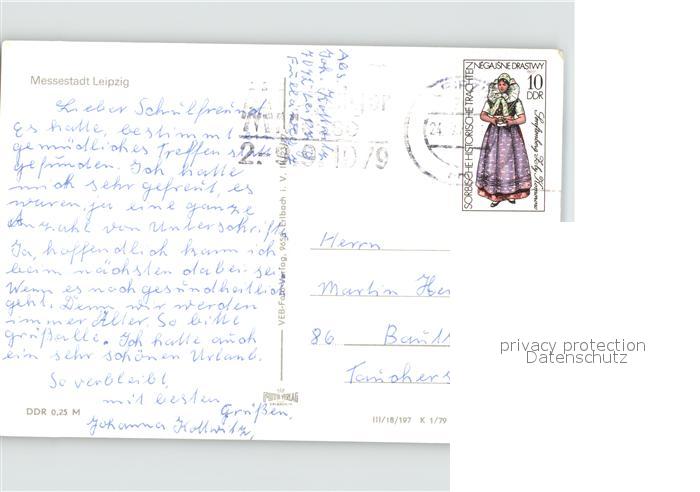 Messestadt Leipzig
Lieber Schulfreund
Es hatte, bestimmt
gemüdliches Treffen statt
gefunden. Ich hatte
mich sehr gefreut, es
waren, ja eine ganze
Anzahl von Unterschrift
Ja, hoffendlich kann ich
beim nächsten dabei sei
Wenn es noch gesundheitlich
geht. Denn wir werden
immer Älter. So bitte
grüßalle. Ich hatte auch
ein sehr schönen Urlaub.
So verbleibt,
mit besten
Grüßen,
Johanna Kollwitz,
DDR 0,25 M
Abs.
Joh. Kollwitz
VEB-Foto-Verlag, 9659 Erlbach i. V.
FOTO VERLAG
SORBISCHE HISTORISCHE TRACHTEN
NĚGAJŠNE DRASTWY
10
DDR
24.
Herrn
Martin
86
III/18/197 K 1/79
privacy protection
Datenschutz